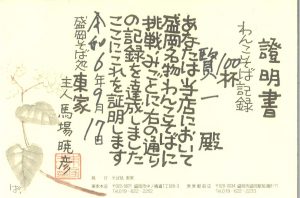 證明書
わんこそば記録
100杯
賢一 殿
あなたは当店において
盛岡名物わんこそばに
挑戦みごとに右の通り
の記録を達成しました
ここにこれを証明します
6年9月17日
盛岡そば処 東家
主人 馬場暁彦